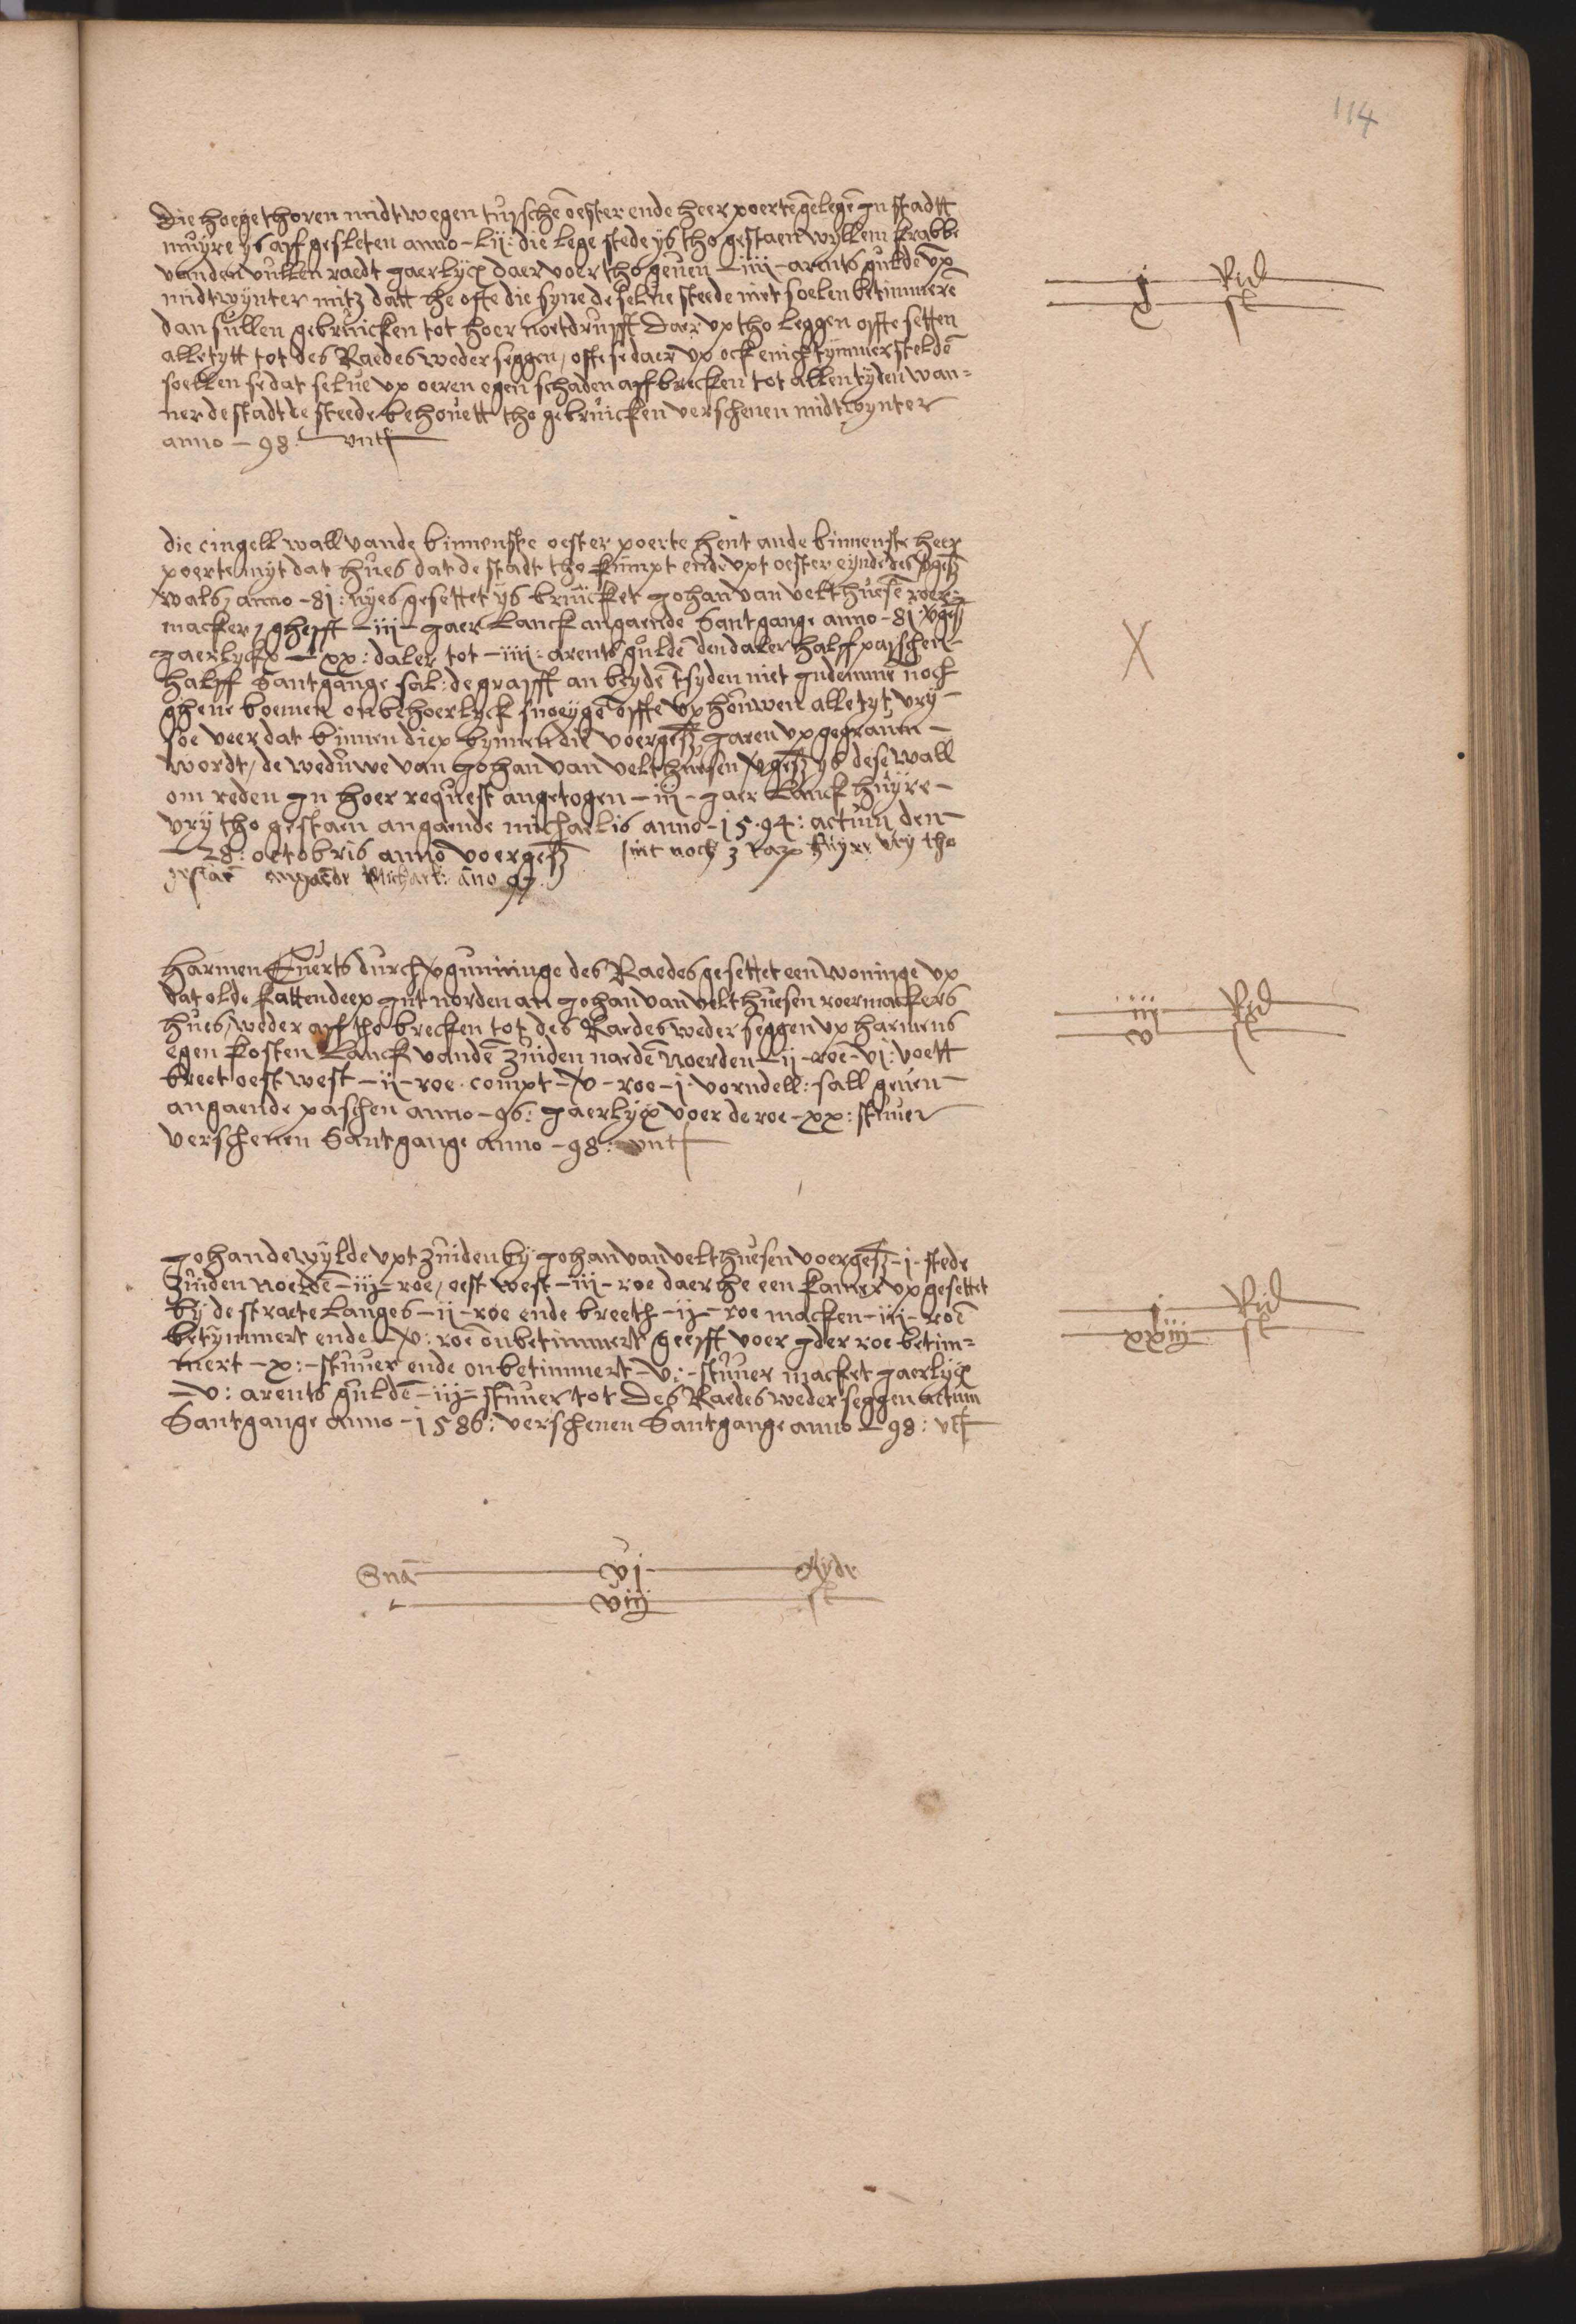 114
Die hoege thoren midtwegen tusschē oester ende heer poertē gelegē jn stadtt
muyre ys aff gesleten anno - Lij: die lege stede ys tho gestaen wyllem krabbe
vanden vullen raedt jaerlycx daer voer tho geuen - iiij - arents guldē vp
midtwynter mitz datt he ofte die syne de selue steede niet soelen betimmerē
dan sullen gebruicken tot hoer noetdrufft daer vp tho leggen offte setten
alletytt tot des Raedes weder seggen / offte se daer vp ock enich tymmer steldē
soellen se dat selue vp oeren egen schaden aff brecken tot allen tyden wan=
ner de stadt de steede behouett tho gebruicken verschenen midtwynter
anno - 98: vntf
j Rid
x st
die cingell wall vande binnenste oester poerte hent ande binnenste heer
poerte myt dat hues dat de stadt tho kumpt ende vpt oester eynde des vgesz
wals / anno - 81: nyes gesettet ys bruicket johan van velthuesē roer=
macker / ghefft - iij - jaer Lanck angaende Santgange anno - 81 vgesz
jaerlyckx - xx: daler tot - iiij: arents guldē den daler halff paeschen -
halff Santgange sal: de grafft an beydē syden niet jndemmē noch
ghene boemen onbehoerlyck snoeygē offte vphouwen alletyt vry -
soe veer dat binnen diep bynnen die voergesz jaren vpgegrauen -
wordt / de weduwe van johan van velthuesen vgesz ys dese wall
om reden jn hoer request angetogen - iij - jaer Lanck huyre -
vry tho gestaen angaende michaelis anno - 15.94: actum den -
- 28: octobris anno voergesz noch 3 huyre vry tho
gestaē angaēde Michaeli: āno 97.
X
Harmen Euerts durch vgunninge des Raedes gesettet een woninge vp
dat olde kattendeep jnt norden an johan van velthuesen roermackers
hues / weder aff tho brecken tot des Raedes weder seggen vp harmens
egen kosten Lanck vandē Zuiden naedē Noerden - ij - roē - vi: voett
breet oest west - ij - roe. compt - v - roe - j - vorndell: sall geuen -
angaende paschen anno - 96: jaerlycx voer de roe - xx: stuuer
verschenen Santgange anno - 98: vntf
iij Rid
v st
johan de wylde vpt Zuiden by johan van velthuesen voergesz - i - stede
Zuiden noerdē - iij - roe / oest west - iij - roe daer he een kamer vp gesettet
by de straete Langes - ij - roe ende breeth - ij - roe macken - iiij - roē
betymmert ende - v: roē onbetimmert geefft voer jder roe betim=
mert - x: - stuuer ende onbetimmert - v: - stuuer macket jaerlycx
- v: arents guldē - iij - stuuer tot des Raedes weder seggen actum
Santgange anno - 1586: verschenen Santgange anno - 98: vtf
j Rid
xxiij st
Sūa vj Ryde
viij st